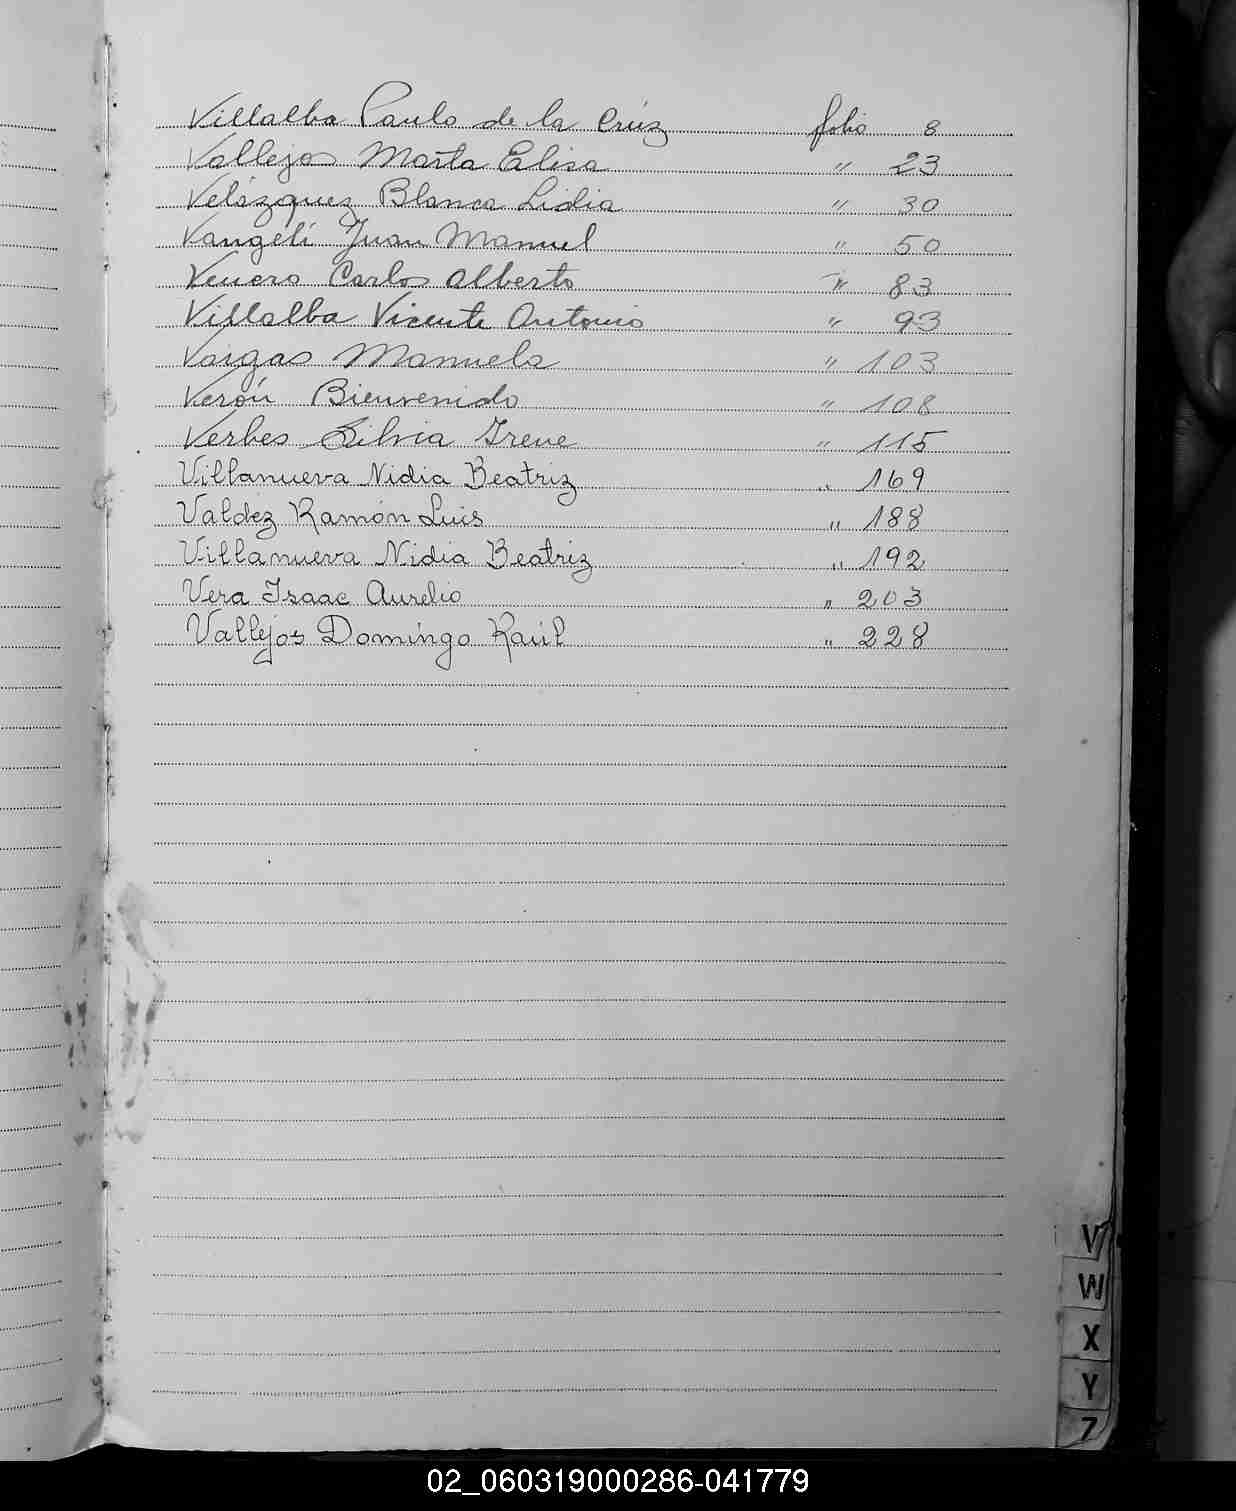 Villalba Paulo de la Crúz folio 8
Vallejos Marta Elisa " 23
Velázquez Blanca Lidia " 30
Vangeli Juan Manuel " 50
Venero Carlos Alberto " 83
Villalba Vicente Antonio " 93
Vargas Manuela " 103
Verón Bienvenido " 108
Verbes Silvia Irene " 115
Villanueva Nidia Beatriz " 169
Valdéz Ramón Luis " 188
Villanueva Nidia Beatriz " 192
Vera Isaac Aurelio " 203
Vallejos Domingo Raúl " 228
V
W
X
Y
Z
02_060319000286-041779